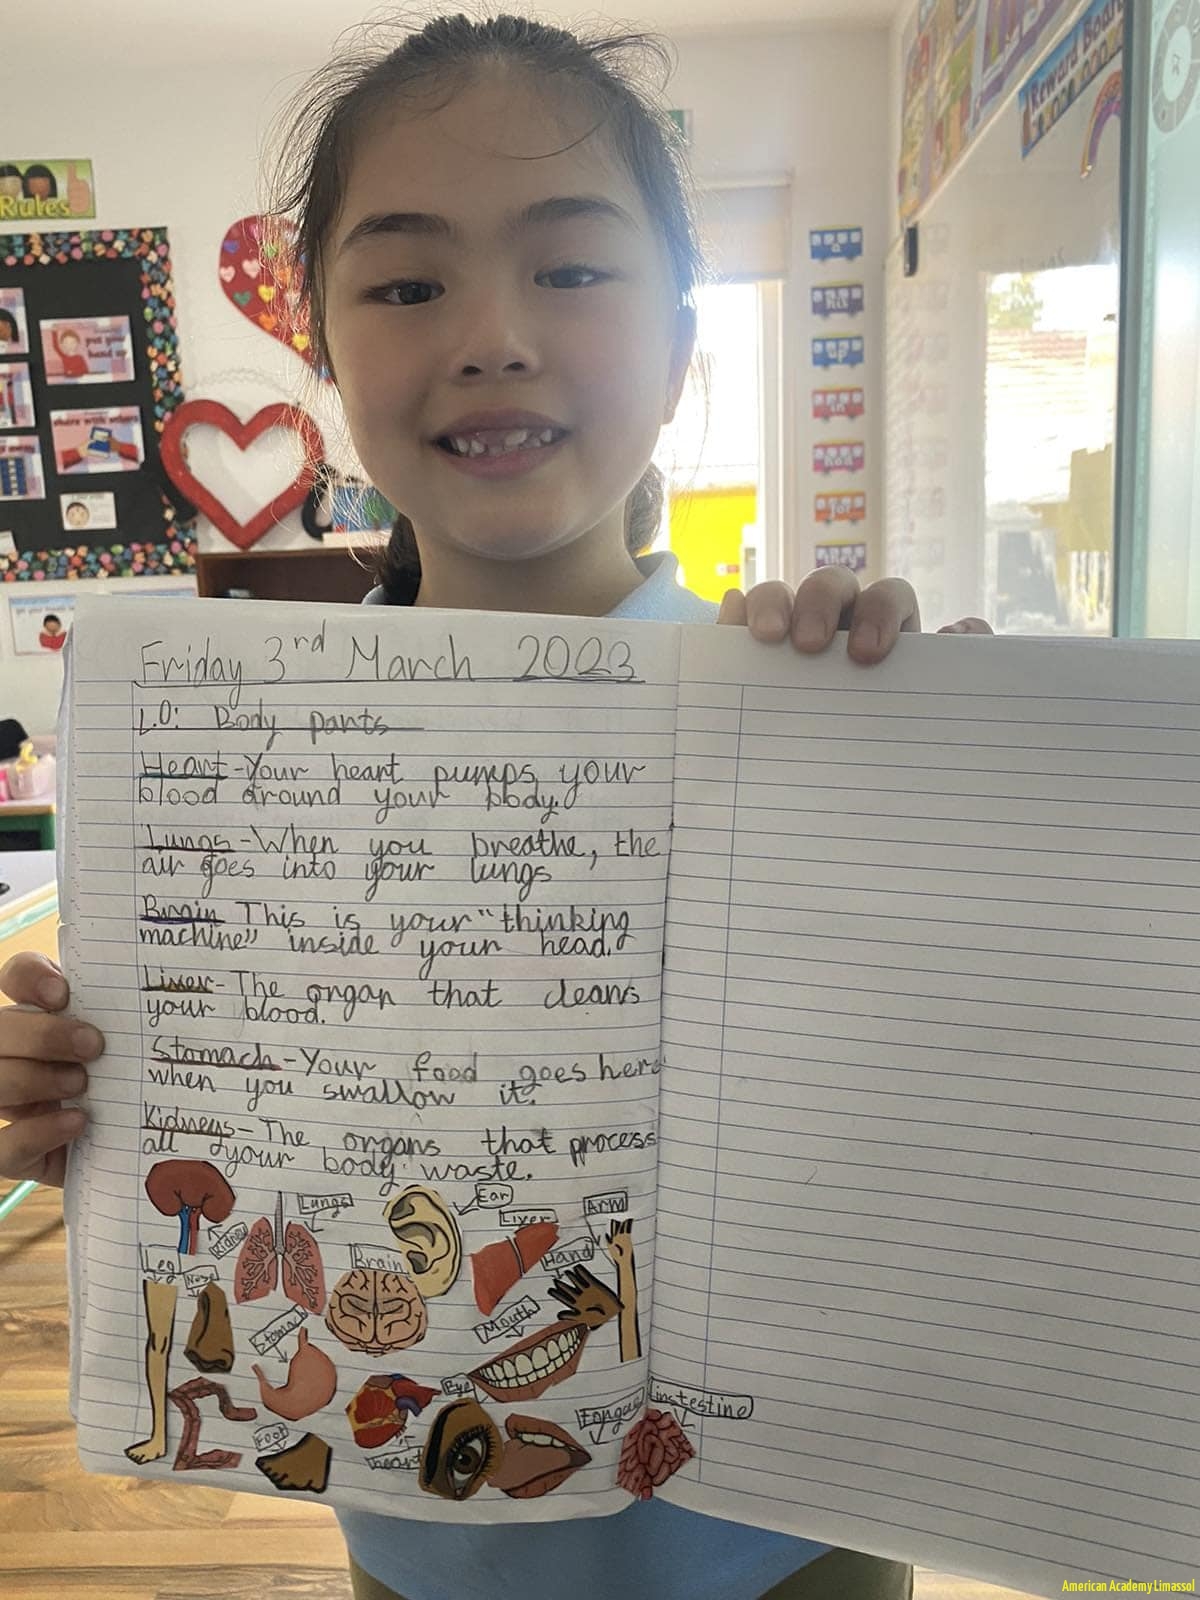 Rules
Reward Board
put your
hand up
share with others
a
up
in
for
they
Friday 3rd March 2023
L.O: Body parts
Heart-Your heart pumps your
blood around your body.
Lungs-When you breathe, the
air goes into your lungs
Brain This is your "thinking
machine" inside your head.
Liver-The organ that cleans
your blood.
Stomach-Your food goes here
when you swallow it.
Kidneys-The organs that process
all your body waste.
Kidney
Lungs
Ear
Liver
Arm
Leg
Nose
Brain
Hand
Stomach
Mouth
Eye
Foot
heart
Tongue
instestine
American Academy Limassol